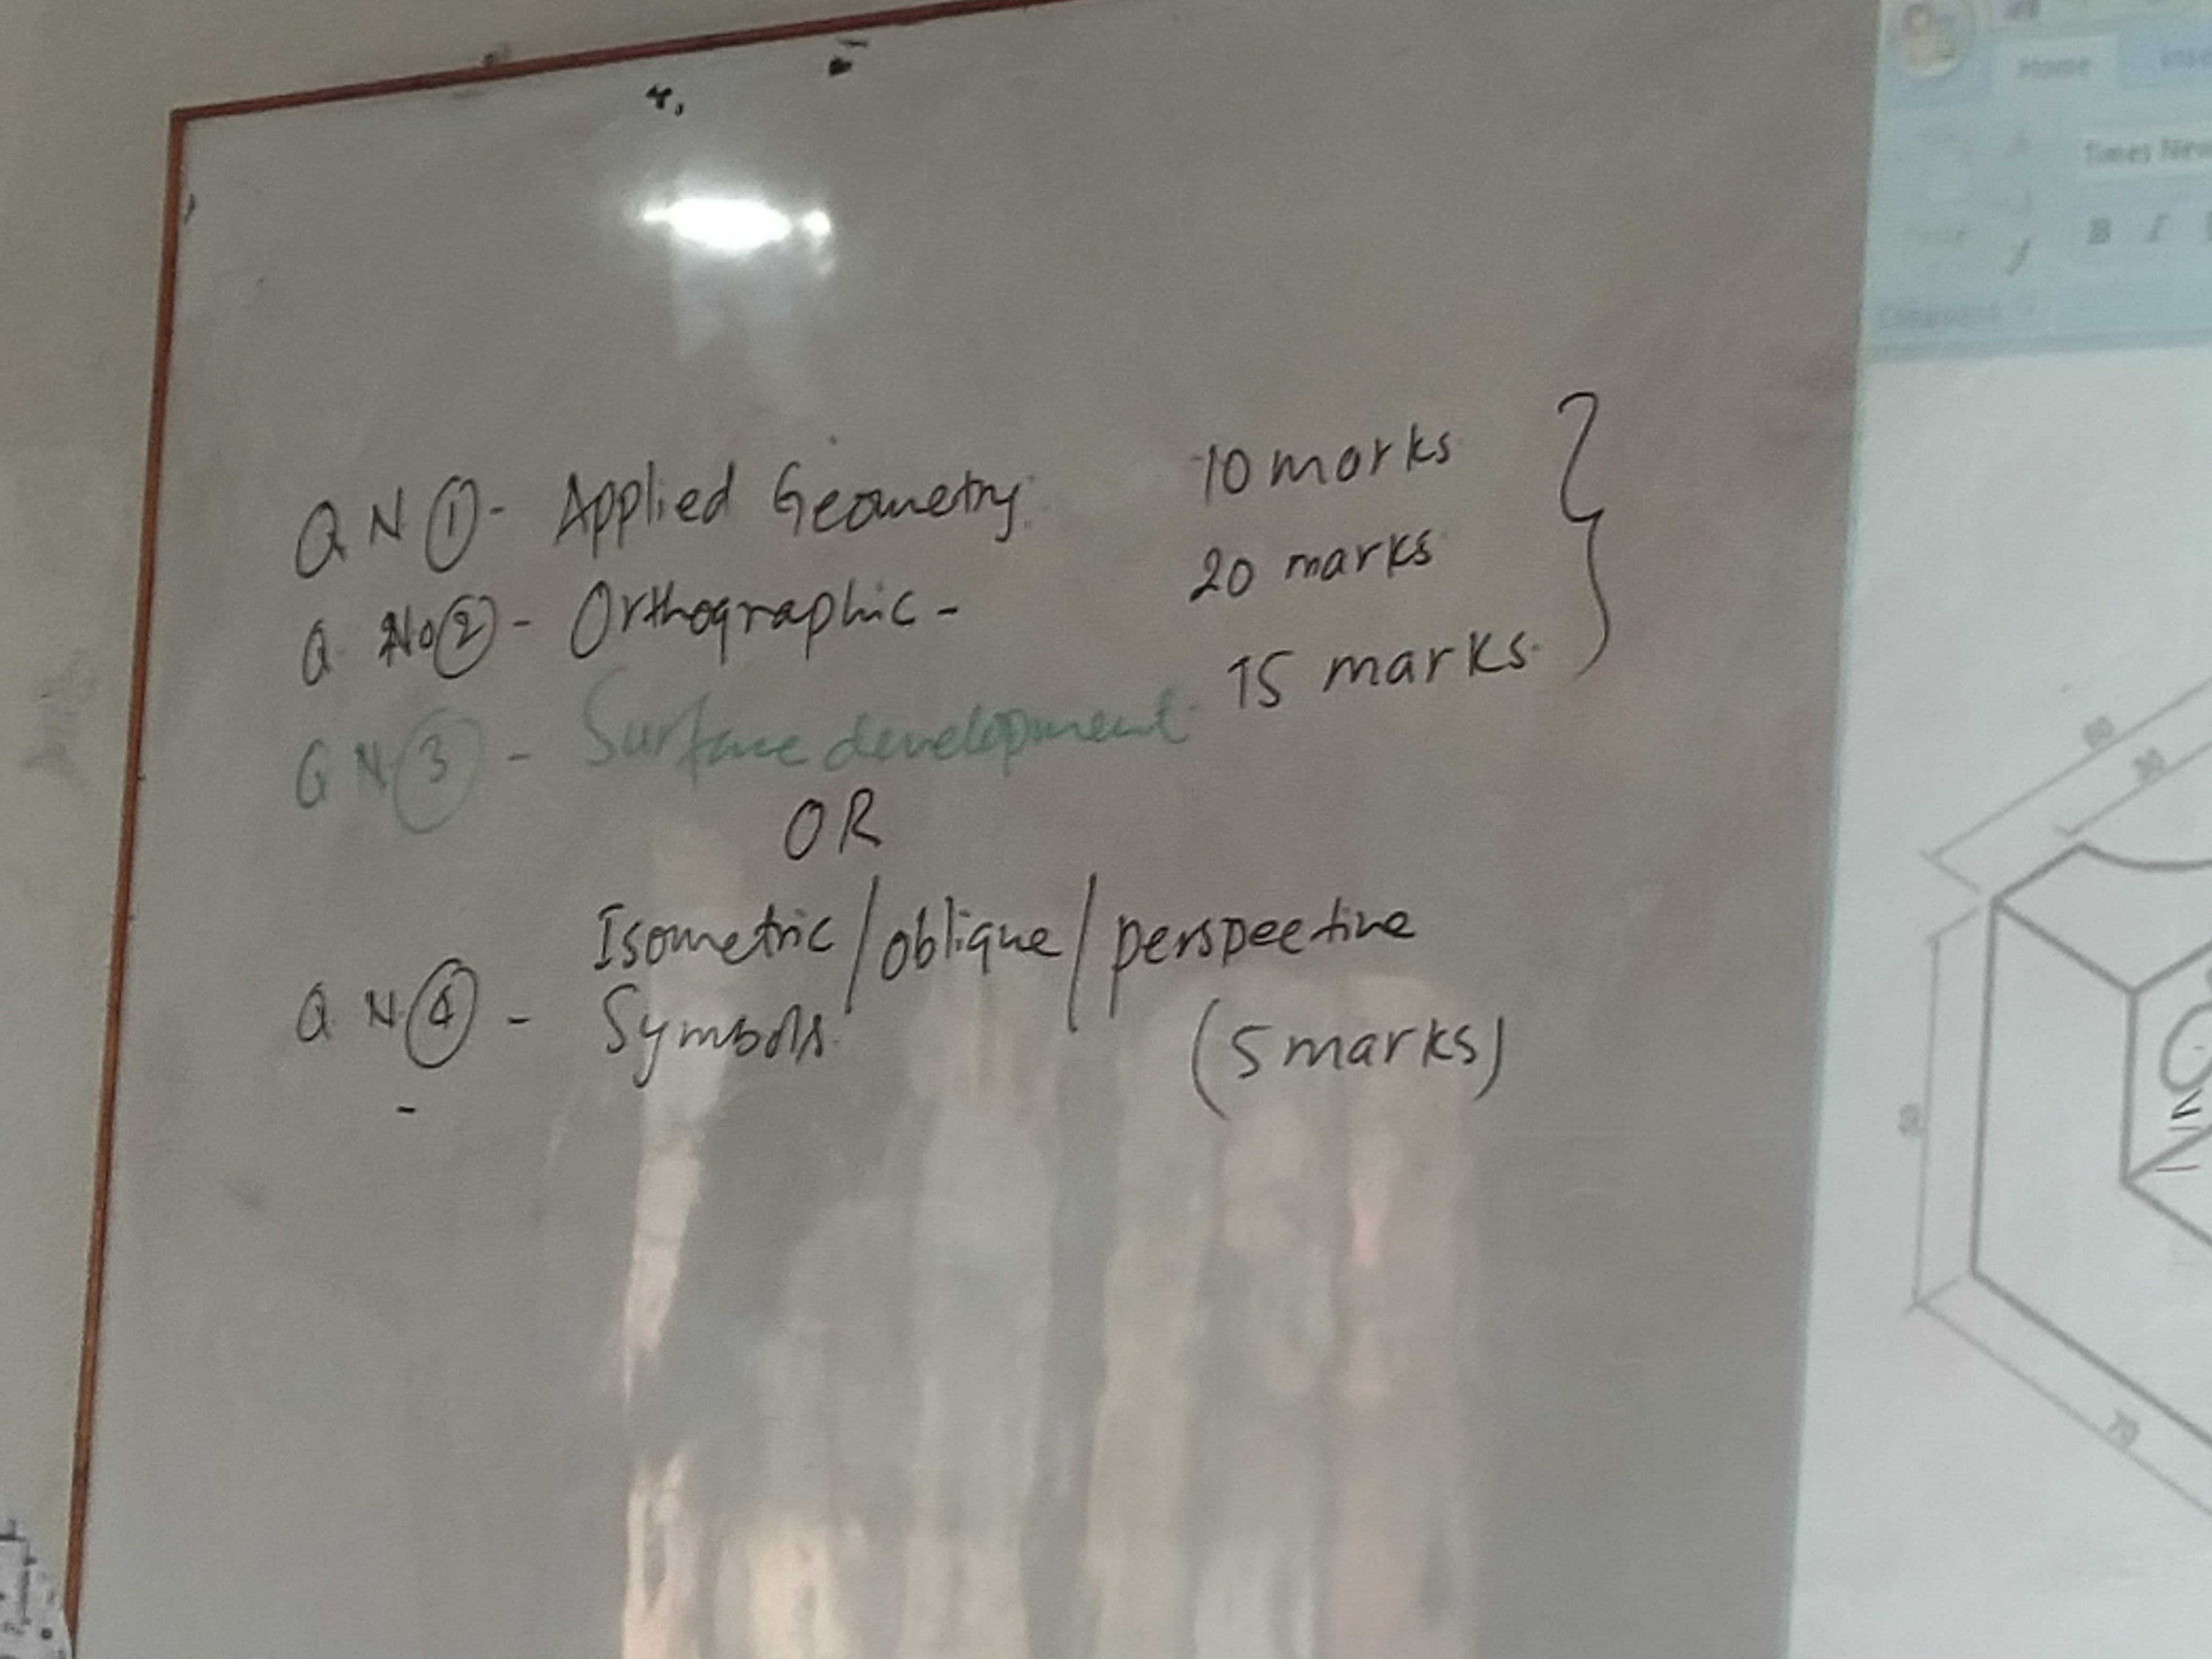 Q N ① - Applied Geometry 10 marks
Q. No ② - Orthographic - 20 marks
Q N ③ - Surface development 15 marks
OR
Isometric / oblique / perspective
Q N. ④ - Symbols (5 marks)
Home
Times New
B I
Clipboard
60
30
70